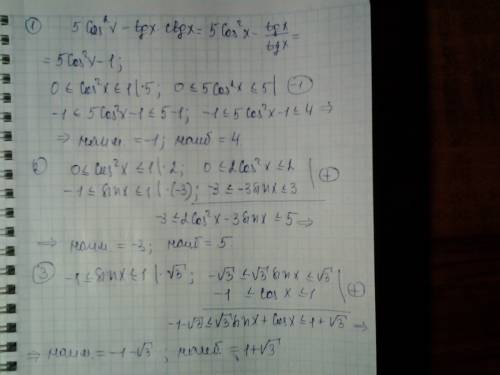 ① 5 Cos²x - tgx · ctgx = 5Cos²x - tgx/tgx =
= 5Cos²x - 1;
0 ≤ Cos²x ≤ 1 | ·5; 0 ≤ 5Cos²x ≤ 5 | -1
-1 ≤ 5Cos²x - 1 ≤ 5-1; -1 ≤ 5Cos²x - 1 ≤ 4 ⇒
⇒ наим. = -1; наиб = 4.
② 0 ≤ Cos²x ≤ 1 | ·2; 0 ≤ 2Cos²x ≤ 2
-1 ≤ sinx ≤ 1 | ·(-3); -3 ≤ -3sinx ≤ 3 | +
-3 ≤ 2Cos²x - 3sinx ≤ 5 ⇒
⇒ наим = -3; наиб = 5.
③ -1 ≤ sinx ≤ 1 | ·√3; -√3 ≤ √3 sinx ≤ √3
-1 ≤ cosx ≤ 1 | +
-1-√3 ≤ √3 sinx + Cosx ≤ 1+√3 ⇒
⇒ наим. = -1-√3; наиб = 1+√3